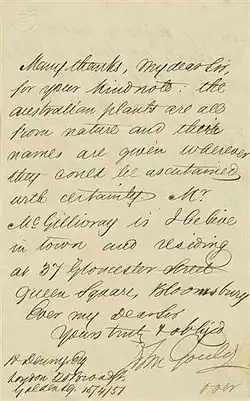 Many thanks, my dear Sir,
for your kind note: the
Australian plants are all
from nature and their
names are given wherever
they could be ascertained
with certainty Mr
McGillivray is I believe
in town and residing
at 57 Gloucester Street
Queen Square, Bloomsbury
Ever my dear Sir
Yours truly & oblig'd
John Gould
H Denny Esq
Golden Sq. 
over